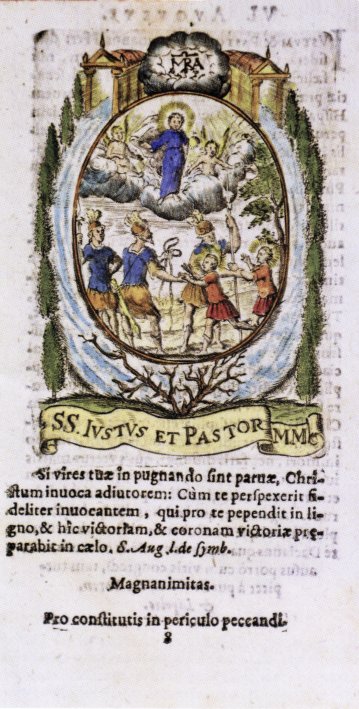 MRA
SS. IVSTVS ET PASTOR MM.
Si vires tuæ in pugnando sint paruæ, Chri-
stum inuoca adiutorem: Cùm te perspexerit fi-
deliter inuocantem, qui pro te pependit in li-
gno, & hîc victoriam, & coronam victoriæ prę-
parabit in cælo. S. Aug l. de symb.
Magnanimitas.
Pro constitutis in periculo peccandi.
8